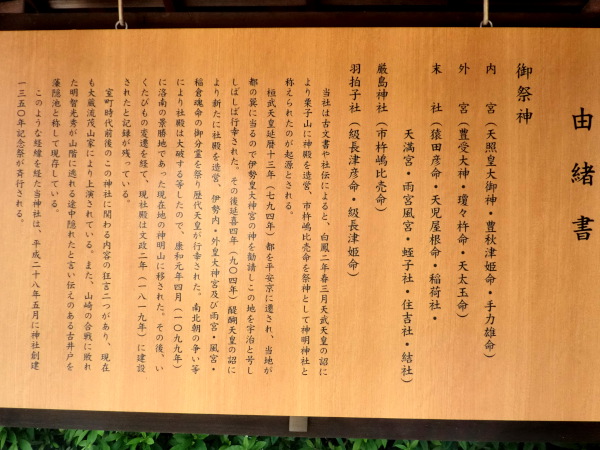 由緒書
御祭神
内　宮（天照皇大御神・豊秋津姫命・手力雄命）
外　宮（豊受大神・瓊々杵命・天太玉命）
末　社（猿田彦命・天児屋根命・稲荷社・
天満宮・雨宮風宮・蛭子社・住吉社・結社）
厳島神社（市杵嶋比売命）
羽拍子社（級長津彦命・級長津姫命）
当社は古文書や社伝によると、白鳳二年春三月天武天皇の詔に
より栗子山に神殿を造営、市杵嶋比売命を祭神として神明神社と
称えられたのが起源とされる。
桓武天皇延暦十三年（七九四年）都を平安京に遷され、当地が
都の巽に当るので伊勢皇大神宮の神を勧請しこの地を宇治と号し
しばしば行幸された。その後延喜四年（九〇四年）醍醐天皇の詔に
より新たに社殿を造営、伊勢内・外皇大神宮及び雨宮・風宮・
稲倉魂命の御分霊を祭り歴代天皇が行幸された。南北朝の争い等
により社殿は大破する等したので、康和元年四月（一〇九九年）
に洛南の景勝地であった現在地の神明山に移された。その後、い
くたびもの変遷を経て、現社殿は文政二年（一八一九年）に建設
されたと記録が残っている。
室町時代前後のこの神社に関わる内宮の狂言二つがあり、現在
も大蔵流茂山家により上演されている。また、山崎の合戦に敗れ
た明智光秀が山階に逃れる途中隠れたと言い伝えのある古井戸を
藻隠池と称して現存している。
このような経緯を経た当神社は、平成二十八年五月に神社創建
一三五〇年記念祭が斉行される。